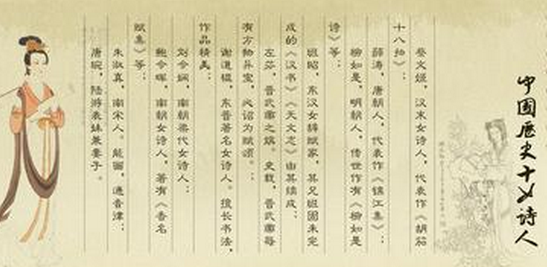 中国历史十大诗人
蔡文姬，汉末女诗人，代表作《胡笳
十八拍》；
薛涛，唐朝人，代表作《锦江集》；
柳如是，明朝人，传世作有《柳如是
诗》等；
班昭，东汉女辞赋家，其兄班固未完
成的《汉书》《天文志》由其续成；
左芬，晋武帝之嫔。史载，晋武帝每
有方物异宝，必诏为赋颂。；
谢道韫，东晋著名女诗人。擅长书法，
作品精美；
刘令娴，南朝梁代女诗人；
鲍令晖，南朝女诗人，著有《香茗
赋集》等；
朱淑真，南宋人。能画，通音律；
唐琬，陆游表妹兼妻子。